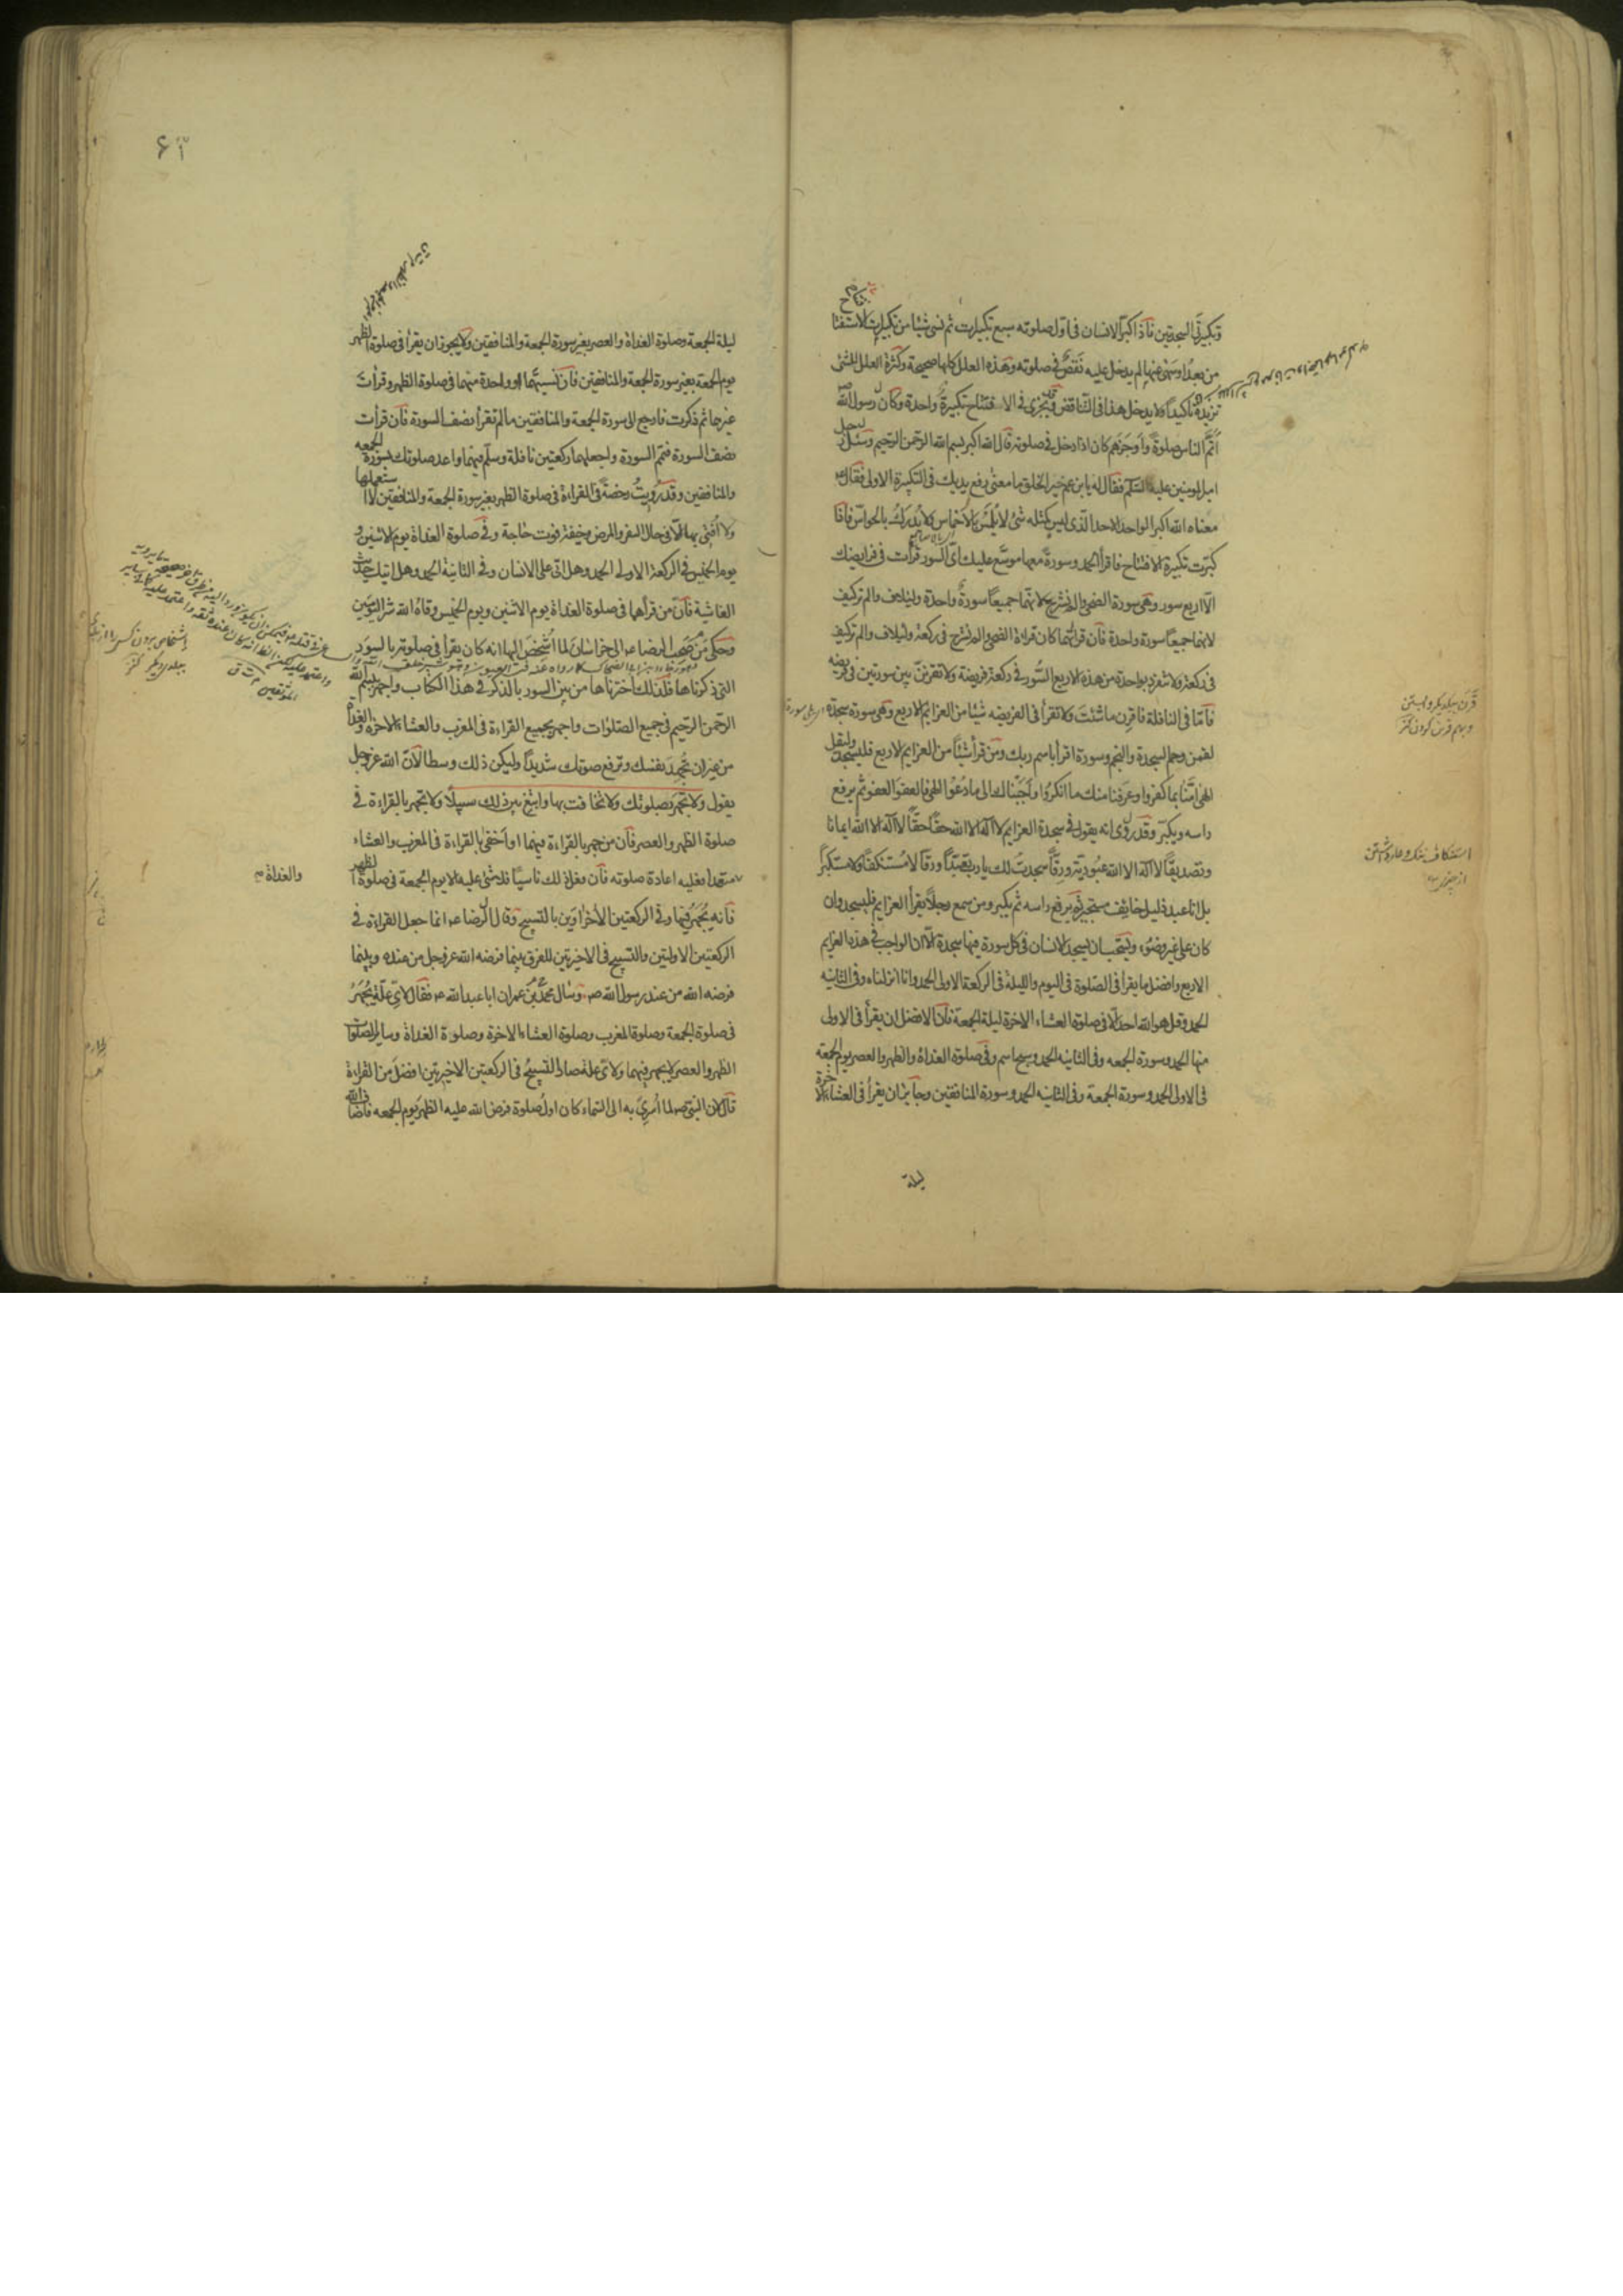 وتكبيرتي السجدتين فاذا كبّر الانسان في اول صلوته سبع تكبيرات ثم نسي شيئا من تكبيرات الاستفتاح
من بعد او سهى عنها لم يدخل عليه نقص في صلوته وهذه العلل كلها صحيحة وكثرة العلل للشئ
تزيده تاكيداً ولا يدخل هذا في التناقض وقد تجزي في الافتتاح تكبيرة واحدة وكان رسول الله ص
اتمّ الناس صلوة واوجزهم كان اذا دخل في صلوته قال الله اكبر بسم الله الرحمن الرحيم وسئل رجل
امير المومنين عليه السلم فقال له يا ابن عم خير الخلق ما معنى رفع يديك في التكبيرة الاولى فقال
معناه الله اكبر الواحد الاحد الذي ليس كمثله شئ لا يُلمَسُ بالاخماس ولا يُدرَكُ بالحواسّ فاذا
كبّرت تكبيرة الافتتاح فاقرأ الحمد وسورة معها موسّع عليك ايّ السور قرأت في فرايضك
الّا اربع سور وهي سورة الضحى والم نشرح لانهما جميعاً سورة واحدة ولايلاف والم تر كيف
لانهما جميعاً سورة واحدة فان قرأتهما كان قراءة الضحى والم نشرح في ركعة ولايلاف والم تر كيف
في ركعة ولا تنفرد بواحدة من هذه الاربع السُّور في ركعة فريضة ولا تقرننّ بين سورتين في فريضه
فامّا في النافلة فاقرن ما شئت ولا تقرأ في الفريضه شيئا من العزايم الاربع وهي سورة سجدة
لقمن وحم السجدة والنجم وسورة اقرأ باسم ربك ومن قرأ شيئاً من العزايم الاربع فليسجد وليقل
الهي امنّا بما كفروا وعرفنا منك ما انكروا واجبناك الى ما دعوا الهي فالعفو العفو ثم يرفع
راسه ويكبّر وقد روي انه يقول في سجدة العزايم لا اله الا الله حقاً حقاً لا اله الا الله ايمانا
وتصديقاً لا اله الا الله عبُوديّة ورقّاً سجدت لك يا رب تعبّداً ورقاً لا مُستنكفاً ولا مستكبراً
بل انا عبد ذليل خايف مستجير ثم يرفع راسه ثم يكبر ومن سمع رجلاً يقرأ العزايم فليسجد وان
كان على غير وضوء ويستحب ان يسجد الانسان في كل سورة فيها سجدة الّا ان الواجب في هذه العزايم
الاربع وافضل ما يقرأ في الصلوة في اليوم والليلة في الركعة الاولى الحمد وانا انزلناه وفي الثانيه
الحمد وقل هو الله احد الّا في صلوة العشاء الاخرة ليلة الجمعة فان الافضل ان يقرأ في الاولى
منها الحمد وسورة الجمعه وفي الثانيه الحمد وسبح اسم وفي صلوة الغداة والظهر والعصر يوم الجمعة
في الاولى الحمد وسورة الجمعة وفي الثانيه الحمد وسورة المنافقين وجايز ان يقرأ في العشاء الاخرة
ليلة
استنكاف ننك وعار داشتن
از چيزى
ليلة الجمعة وصلوة الغداة والعصر بغير سورة الجمعة والمنافقين ولا يجوز ان يقرأ في صلوة الظهر
يوم الجمعة بغير سورة الجمعة والمنافقين فان نسيتهما او واحدة منهما في صلوة الظهر وقرأت
غيرها ثم ذكرت فارجع الى سورة الجمعة والمنافقين ما لم تقرأ نصف السورة فان قرأت
نصف السورة فتمّم السورة واجعلهما ركعتين نافلة وسلّم فيهما واعد صلوتك بسورة الجمعه
والمنافقين وقد رُويتْ رخصة في القراءة في صلوة الظهر بغير سورة الجمعة والمنافقين لا استعملها
ولا افتي بها الّا في حال السفر والمرض وخيفة فوت حاجة وفي صلوة الغداة يوم الاثنين و
يوم الخميس في الركعة الاولى الحمد وهل اتى على الانسان وفي الثانية الحمد وهل اتيك حديث
الغاشية فانّ من قرأهما في صلوة الغداة يوم الاثنين ويوم الخميس وقاه الله شر اليومين
وحكى من صحب الرضا ع الى خراسان لما اُشخصَ اليها انه كان يقرأ في صلوته بالسور
التي ذكرناها فلذلك اخترناها من بين السور بالذكر في هذا الكتاب واجهر ببسم الله
الرحمن الرحيم في جميع الصلوات واجهر بجميع القراءة في المغرب والعشاء الاخرة والغداة
من غير ان تُجهد نفسك وترفع صوتك شديداً وليكن ذلك وسطا لانّ الله عز وجل
يقول ولا تجهر بصلوتك ولا تخافت بها وابتغ بين ذلك سبيلاً ولا تجهر بالقراءة في
صلوة الظهر والعصر فان من جهر بالقراءة فيهما او اخفى بالقراءة في المغرب والعشاء
متعمدا فعليه اعادة صلوته فان فعل ذلك ناسياً فلا شئ عليه الا يوم الجمعة في صلوة الظهر
فانه يُجهر فيها وفي الركعتين الأخراوين بالتسبيح وقال الرضا ع انما جعل القراءة في
الركعتين الاولتين والتسبيح في الاخيرتين للفرق بين ما فرضه الله عز وجل من عنده وبين ما
فرضه الله من عند رسول الله ص وسأل محمّد بن عمران ابا عبد الله ع فقال لايّ علّة يُجهَرُ
في صلوة الجمعة وصلوة المغرب وصلوة العشاء الاخرة وصلوة الغداة وساير الصلوات
الظهر والعصر لا يجهر فيهما ولايّ علة صار التسبيحُ في الركعتين الاخيرتين افضل من القراءة
قال لان النبي ص لما اُسرِيَ به الى السّماء كان اول صلوة فرض الله عليه الظهر يوم الجمعه فاضاف الله
والغداة